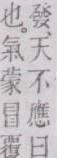 發、天不應曰
也。氣蒙冒覆